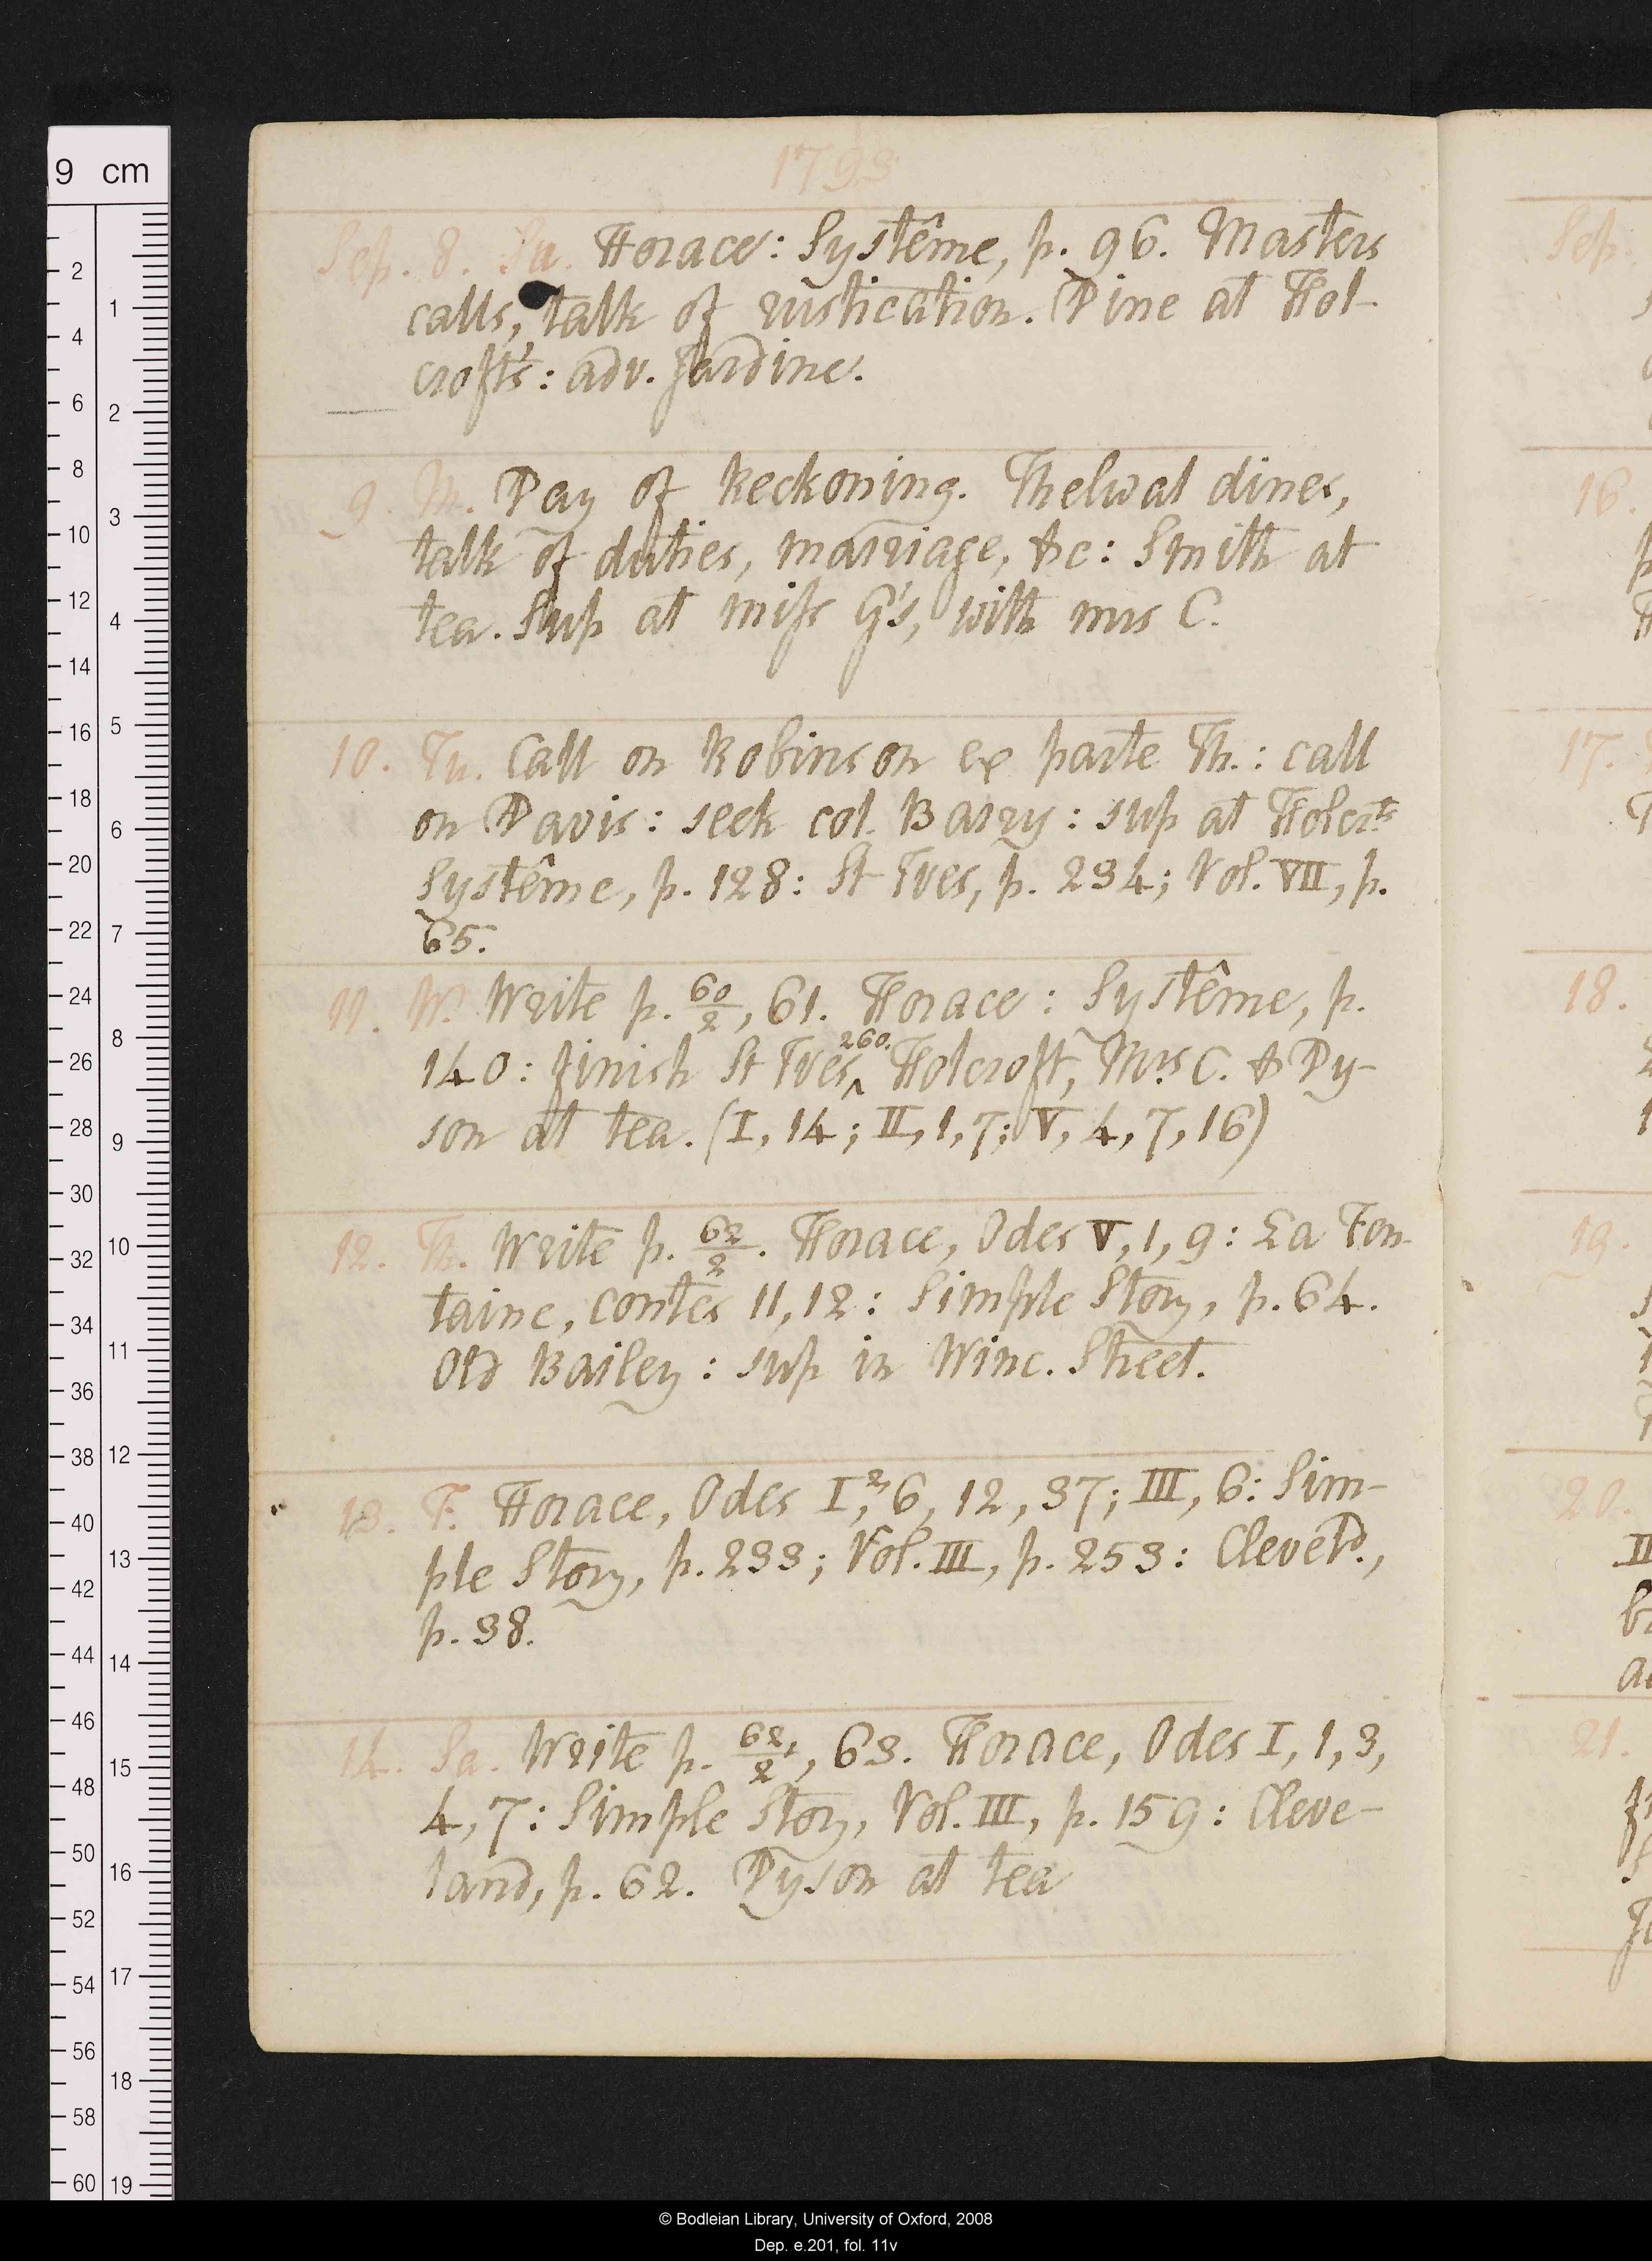 9 cm
1793
Sep. 8. Su. Horace: Systême, p. 96. Masters
calls, talk of rustication. Dine at Hol-
croft's: adv. Jardine.
9. M. Day of Reckoning. Thelwal dines,
talk of duties, marriage, &c: Smith at
tea. Sup at miss G's, with mrs C.
10. Tu. Call on Robinson ex parte Th.: call
on Davis: seek col. Barry: sup at Holcrts
Systême, p. 128: St Ives, p. 234; Vol. VII, p.
65.
11. W. Write p. 60/2, 61. Horace: Systême, p.
140: finish St Ives ^ 260. Holcroft, Mrs C. & Dy-
son at tea. (I, 14; II, 1, 7; V, 4, 7, 16)
12. Th. Write p. 62/2. Horace, Odes V, 1, 9: La Fon-
taine, contes 11, 12: Simple Story, p. 64.
Old Bailey: sup in Winc. Street.
13. F. Horace, Odes I, 2, 6, 12, 37; III, 6: Sim-
ple Story, p. 233; Vol. III, p. 253: Cleveld.,
p. 38.
14. Sa. Write p. 62/2, 63. Horace, Odes I, 1, 3,
4, 7: Simple Story, Vol. III, p. 159: Cleve-
land, p. 62. Dyson at tea
Sep.
16.
17.
18.
19.
20.
21.
© Bodleian Library, University of Oxford, 2008
Dep. e.201, fol. 11v